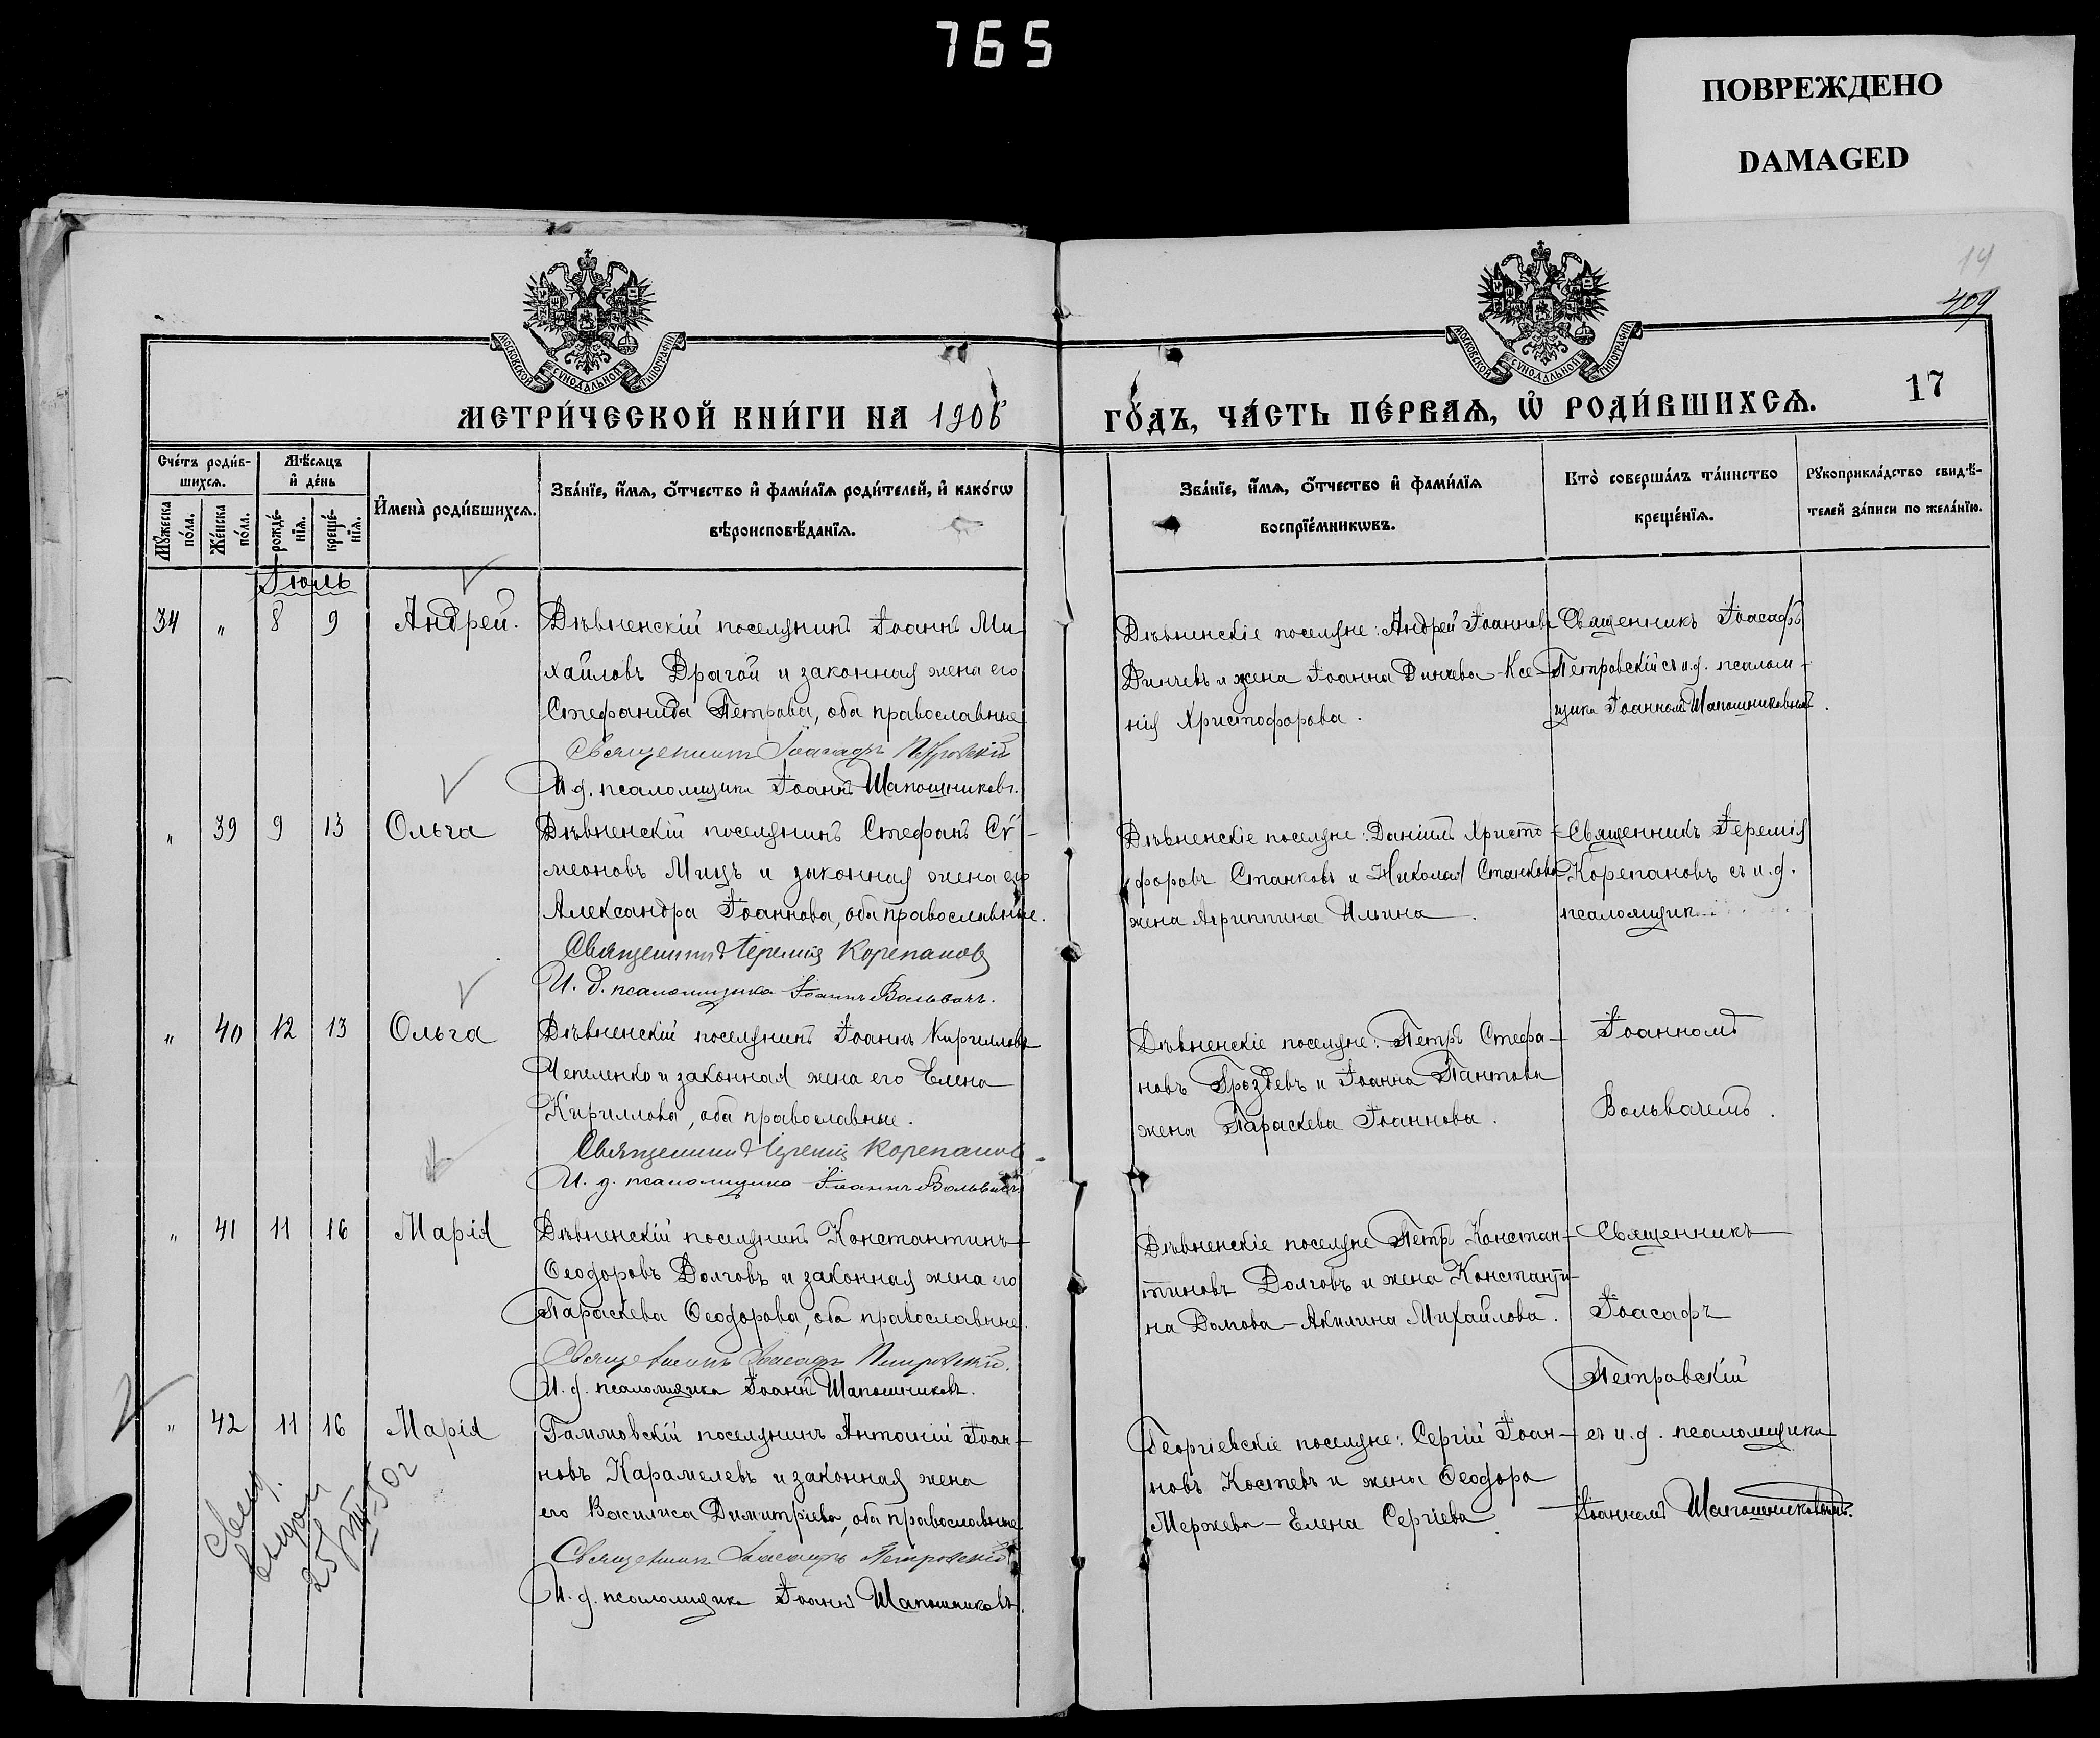 765
ПОВРЕЖДЕНО
DAMAGED
14
409
МОСКОВСКОЙ СѴНОДАЛЬНОЙ ТИПОГРАФІИ
МОСКОВСКОЙ СѴНОДАЛЬНОЙ ТИПОГРАФІИ
МЕТРИ́ЧЕСКОЙ КНИ́ГИ НА 1906
ГО́ДЪ, ЧА́СТЬ ПЕ́РВАѦ, Ѡ҆ РОДИ́ВШИХСѦ.
17
Сче́тъ роди́в-
шихсѧ.
Мꙋ́жеска по́ла.
Же́нска по́ла.
Мѣ́сѧцъ
и҆ де́нь
рожде́-
нїѧ.
креще́-
нїѧ.
И҆мена̀ роди́вшихсѧ.
Зва́нїе, и҆́мѧ, ѻ҆́тчество и҆ фами́лїѧ роди́телей, и҆ како́гѡ
вѣроисповѣ́данїѧ.
Зва́нїе, и҆́мѧ, ѻ҆́тчество и҆ фами́лїѧ
воспрїе́мникѡвъ.
Кто̀ соверша́лъ та́инство
креще́нїѧ.
Рꙋкоприкла́дство свидѣ́-
телей за́писи по жела́нїю.
Іюль
34 " 8 9 Андрей.
Дѣвненскій поселянинъ Іоаннъ Ми-
хайловъ Драгой и законная жена его
Стефанида Петрова, оба православные
Священникъ Іоасафъ Петровскій
И.д. псаломщика Іоаннъ Шапошниковъ.
Дѣвненскіе поселяне: Андрей Іоанновъ
Динчевъ и жена Іоанна Динчева - Ксе-
нія Христофорова.
Священникъ Іоасафъ
Петровскій съ и.д. псалом-
щика Іоанномъ Шапошниковымъ.
" 39 9 13 Ольга
Дѣвненскій поселянинъ Стефанъ Сѵ-
меоновъ Мицъ и законная жена его
Александра Іоаннова, оба православные.
Священникъ Іеремія Корепановъ
И. д. псаломщика Іоаннъ Вольвачъ.
Дѣвненскіе поселяне: Даніилъ Христо-
форовъ Станковъ и Николая Станкова
жена Агриппина Ильина.
Священникъ Іеремія
Корепановъ съ и.д.
псаломщик
" 40 12 13 Ольга
Дѣвненскій поселянинъ Іоаннъ Кирилловъ
Чепеленко и законная жена его Елена
Кириллова, оба православные.
Священникъ Іеремія Корепановъ
И. д. псаломщика Іоаннъ Вольвачъ
Дѣвненскіе поселяне: Петръ Стефа-
новъ Гроздевъ и Іоанна Пантова
жена Параскева Іоаннова.
Іоанномъ
Вольвачемъ.
" 41 11 16 Марія
Дѣвненскій поселянинъ Константинъ
Ѳеодоровъ Долговъ и законная жена его
Параскева Ѳеодорова, оба православные.
Священникъ Іоасафъ Петровскій.
И. д. псаломщика Іоаннъ Шапошниковъ.
Дѣвненскіе поселяне Петръ Констан-
тиновъ Долговъ и жена Константи-
на Долгова - Акилина Михайлова.
Священникъ
Іоасафъ
Петровскій
" 42 11 16 Марія
Гаммовскій поселянинъ Антоній Іоан-
новъ Карамелевъ и законная жена
его Василиса Димитріева, оба православные
Священникъ Іоасафъ Петровскій
И. д. псаломщика Іоаннъ Шапошниковъ.
Георгіевскіе поселяне: Сергій Іоан-
новъ Костевъ и жена Ѳеодора
Мержева - Елена Сергіева.
съ и.д. псаломщика
Іоанномъ Шапошниковымъ.